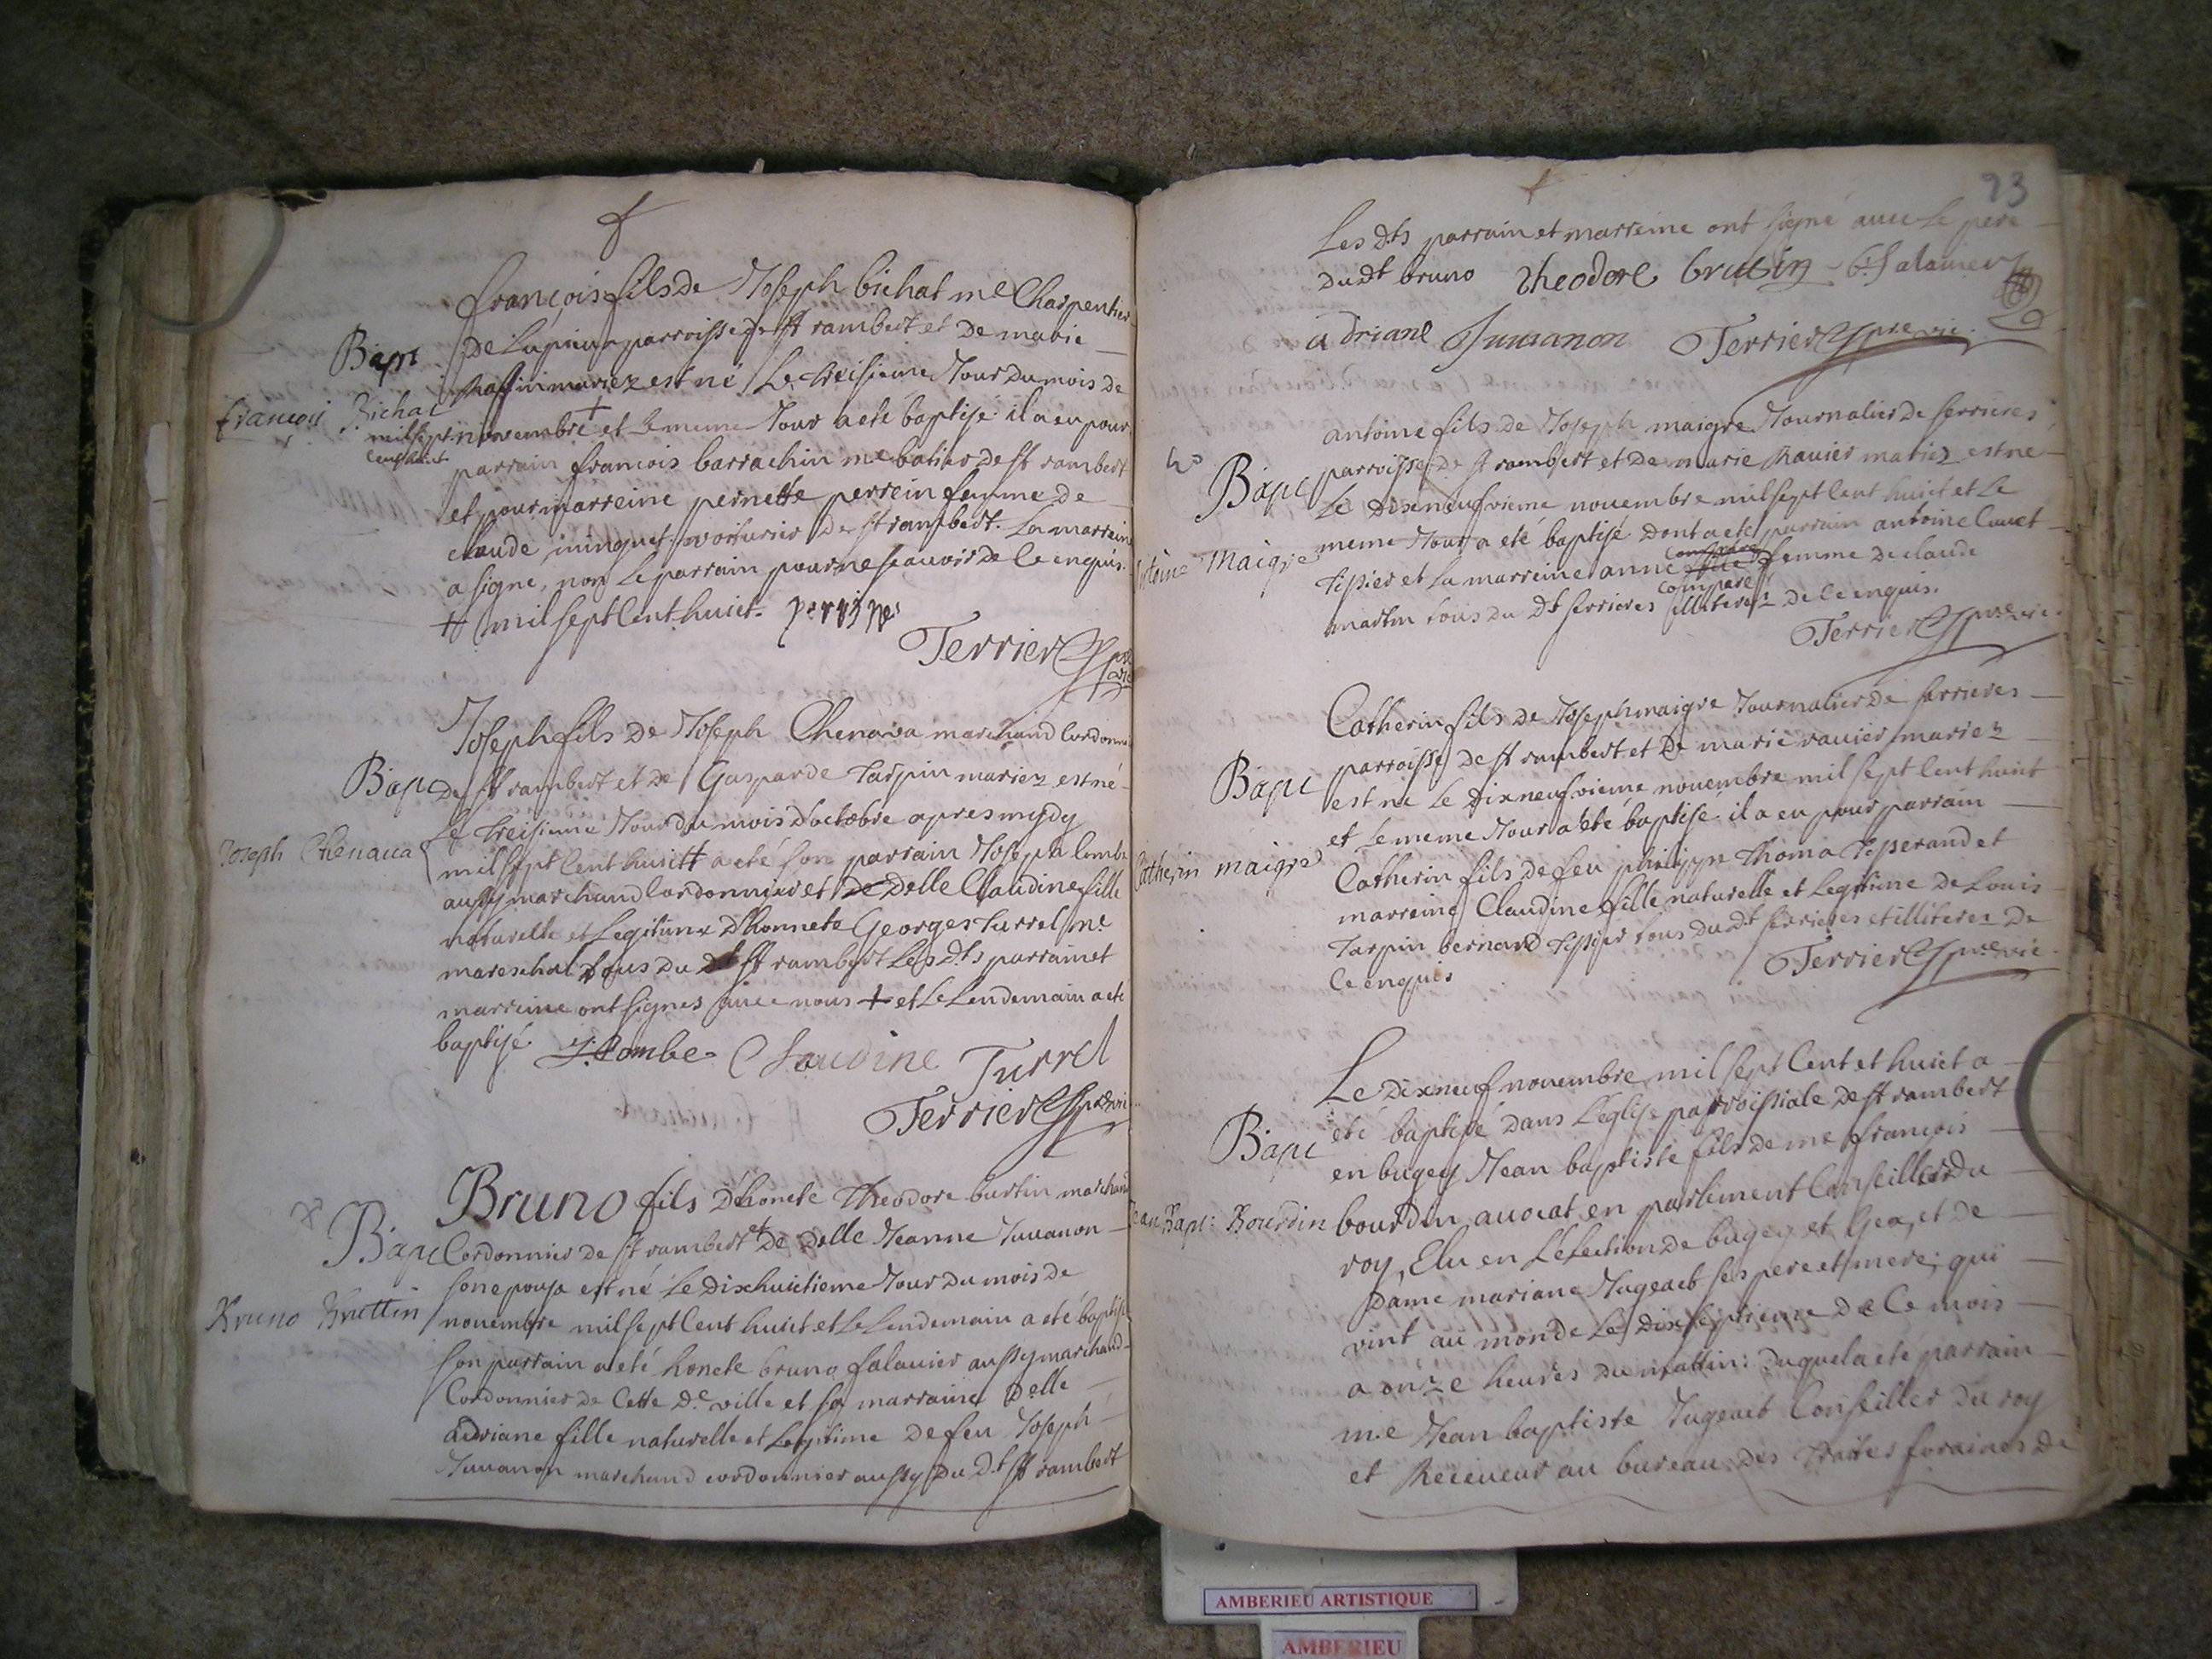 françois fils de Joseph bichat me Charpentier
Bapt
de parroisse de st rambert et de marie
mariez est né Le treisieme Jour du mois de
françois Bichat
mil sept cens huict
novembre + et le meme Jour a eté baptisé il a eu pour
parrain francois barrachin me batier de st rambert
et pour marreine pernette perrein femme de
claude minguet voiturier de st rambert. La marreine
a signé, non Le parrain pour ne scauoir de ce enquis.
+ mil sept cent huict.
Terrier pre vic
Joseph fils de Joseph Chenava marchand cordonni
Bapt
de st rambert et de Gasparde tarpin mariez est né
Le treisieme Jour du mois d'octobre apres mydy
Joseph Chenaua
mil sept cent huict + a eté son parrain Joseph Combe
aussy marchand cordonnier et de delle Claudine fille
naturelle et Legitime d'honnete Georges turrel me
mareschal tous du dt st rambert Les dts parrain et
marreine ont signes auec nous + et Le Lendemain a eté
baptisé J. Combe Claudine Turrel
Terrier pre vic
Bruno fils d'honete Theodore burtin marchand
Bapt
Cordonnier de st rambert et de delle Jeanne Juuanon
son epouse est né Le dixhuictieme Jour du mois de
Bruno Bruttin
nouembre mil sept cent huict et Le Lendemain a eté baptisé
son parrain a eté honete bruno salauier aussy marchand
Cordonnier de Cette de ville et sa marraine delle
adriane fille naturelle et Legitime de feu Joseph
Juuanon marchand cordonnier aussy du dt st rambert
93
Les dts parrain et marreine ont signé auec Le pere
du dt bruno theodore brutin b. Salauier
adriane Juuanon Terrier pre vic.
antoine fils de Joseph maigre Journalier de serrieres
Bapt
parroisse de st rambert et de marie rauier mariez est né
Le dixneufvieme nouembre mil sept cent huict et Le
meme Jour a eté baptisé dont a eté parrain antoine Cuuet
Antoine Maigre
tissier et La marreine anne compare femme de claude
martin tous du dt serrieres illiterez de ce enquis.
Terrier pre vic.
Catherin fils de Joseph maigre Journalier de serrieres
parroisse de st rambert et de marie rauier mariez
Bapt
est né Le dixneufvieme nouembre mil sept cent huict
et Le meme Jour a eté baptisé. il a eu pour parrain
Catherin maigre
Catherin fils de feu philippe thoma tisserand et
marreine Claudine fille naturelle et Legitime de Louis
tarpin bernard tissier tous du dt serrieres et illiterez de
ce enquis
Terrier pre vic.
Le dixneuf nouembre mil sept cent et huict a
eté baptisé dans L'eglise parroissiale de st rambert
Bapt
en bugey Jean baptiste fils de me francois
Jean Bapt: Bourdin
bourdin auocat en parlement Conseiller du
roy, Elu en L'élection de bugey et Gex, et de
Dame mariane Jugeact ses pere et mere; qui
vint au monde Le dixseptieme de Ce mois
a onze heures du mattin: duquel a eté parrain
me Jean baptiste Jugeact Conseiller du roy
et Receueur au bureau des traites foraines de
AMBERIEU ARTISTIQUE
AMBERIEU